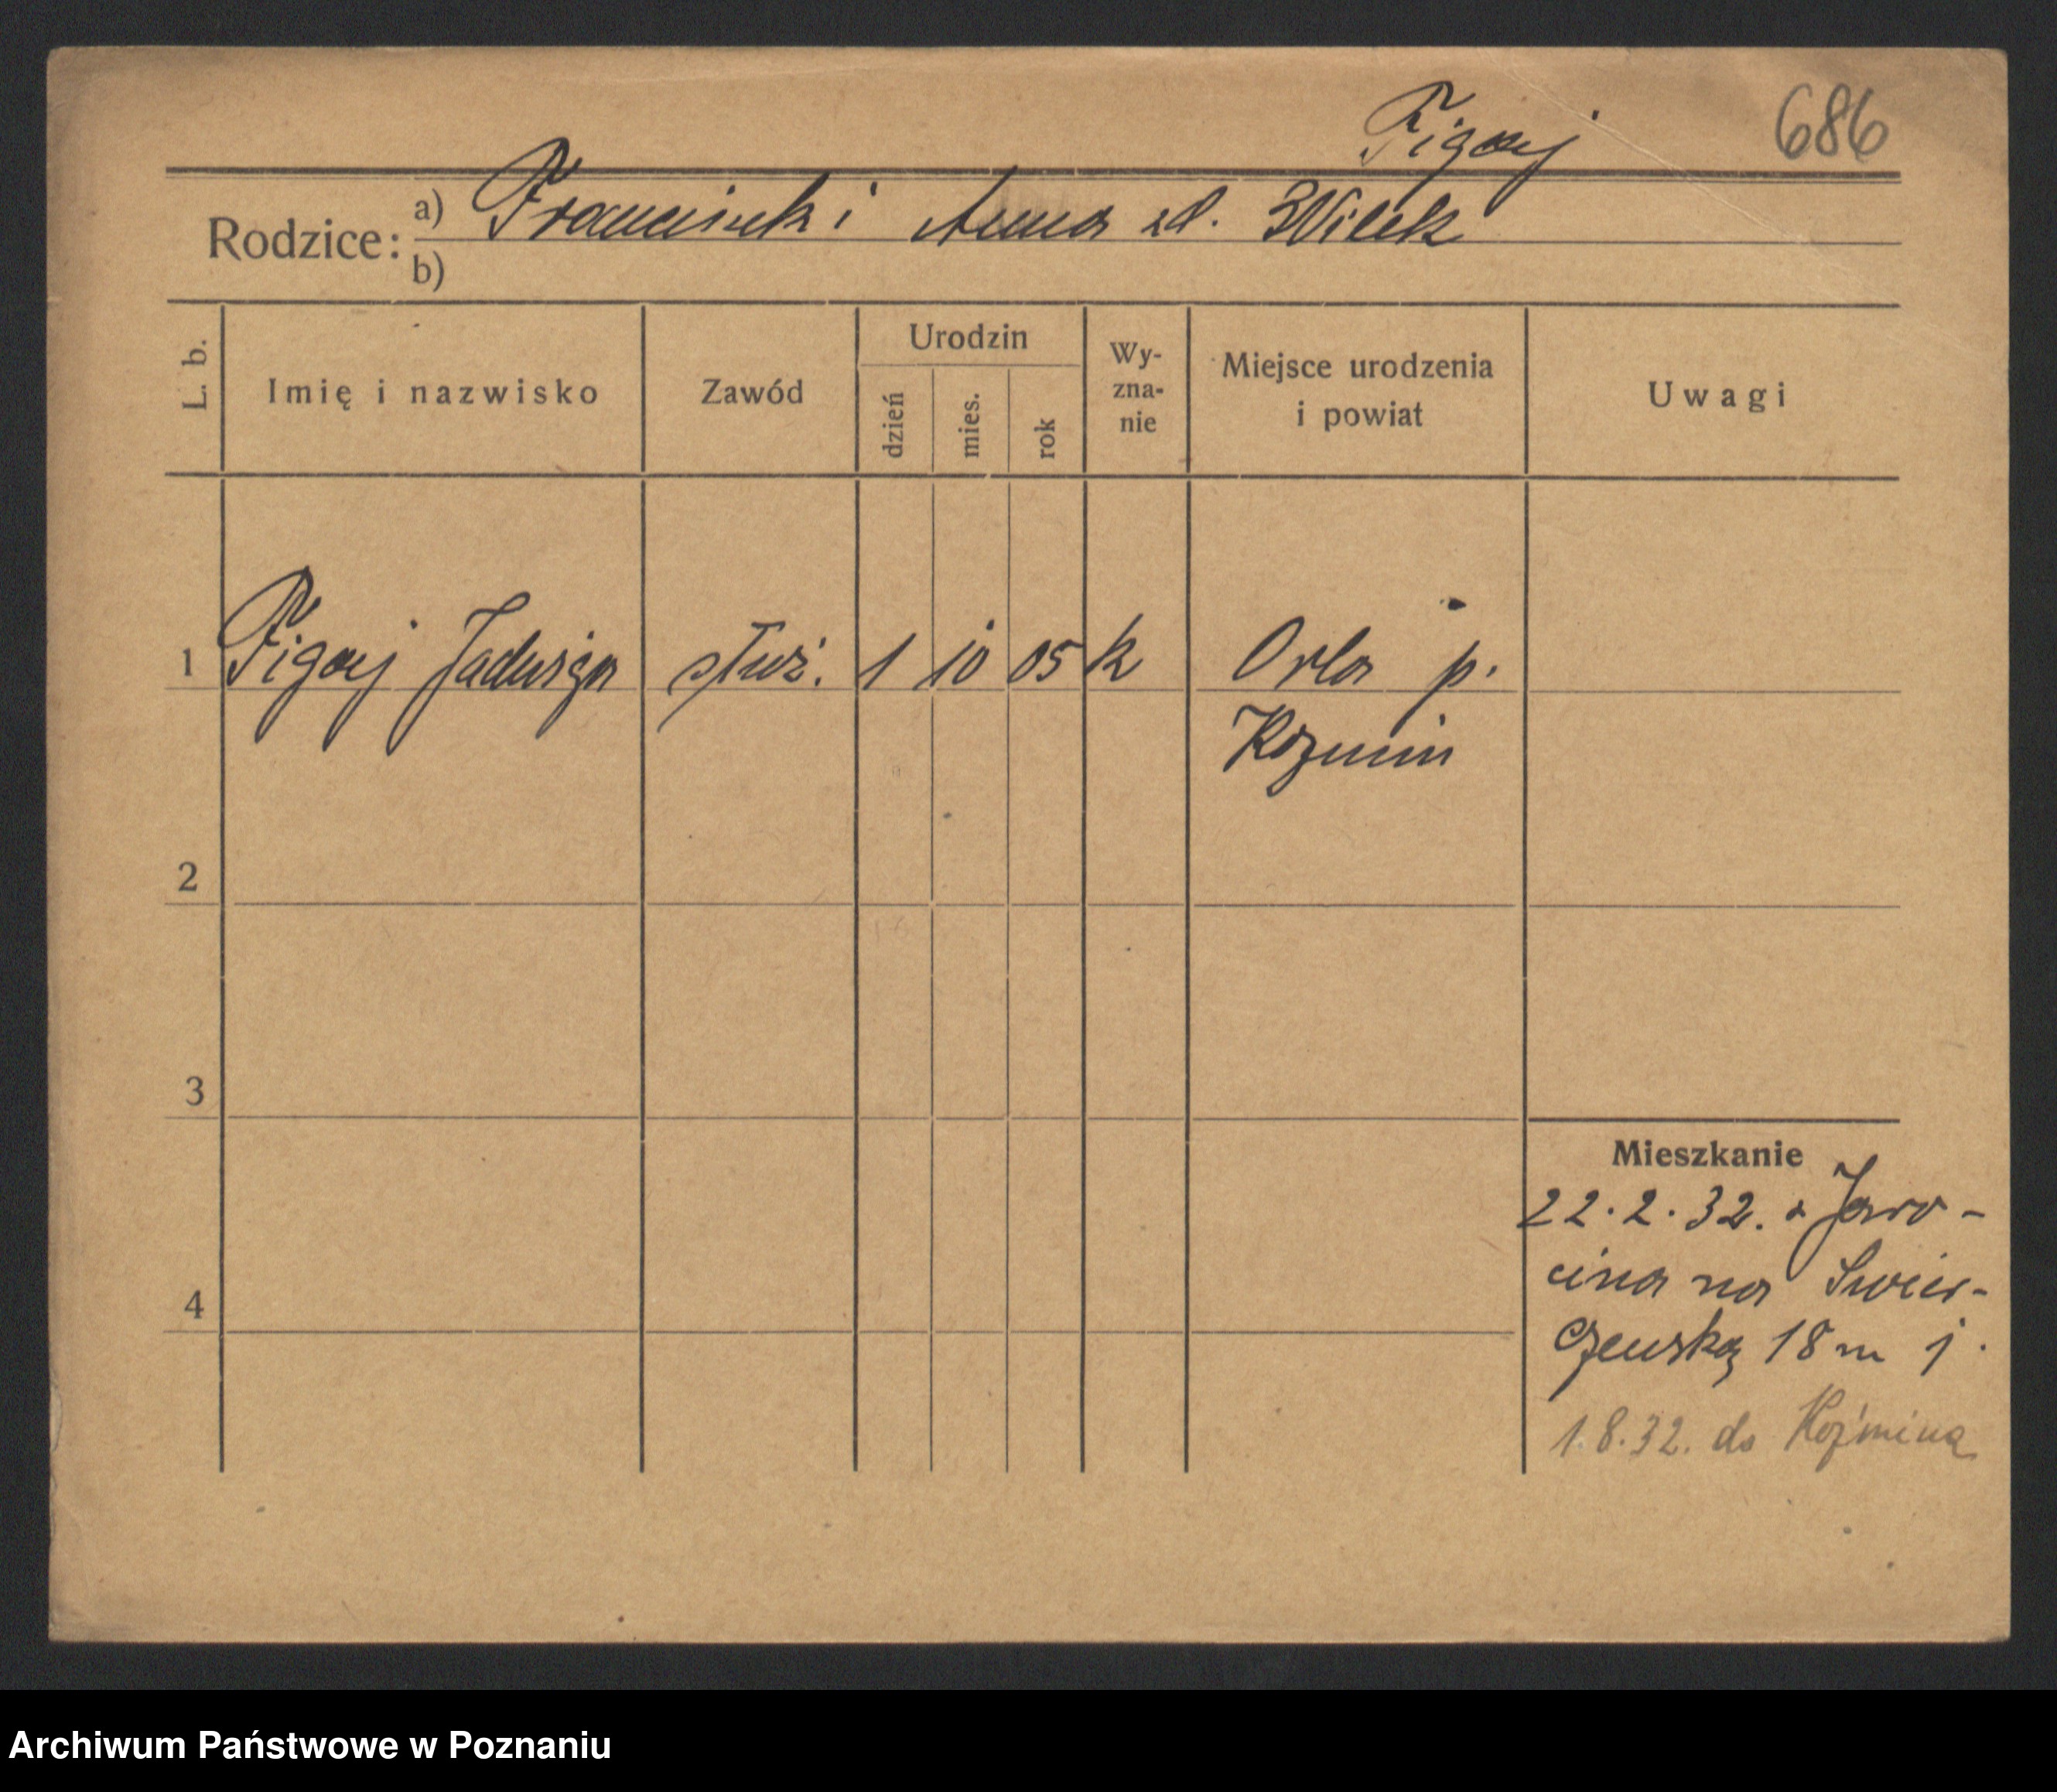 Figaj 686
Rodzice: a) Franciszek i Anna zd. Wilek
b)
L. b. Imię i nazwisko Zawód Urodzin dzień mies. rok Wy-zna-nie Miejsce urodzenia i powiat Uwagi
1 Figaj Jadwiga służ. 1 10 05 k Orla p.
Kozmin
2
3
4
Mieszkanie
22.2.32. z Jaro-
cina na Swier-
czewską 18 m 1.
1.8.32. do Koźmina
Archiwum Państwowe w Poznaniu